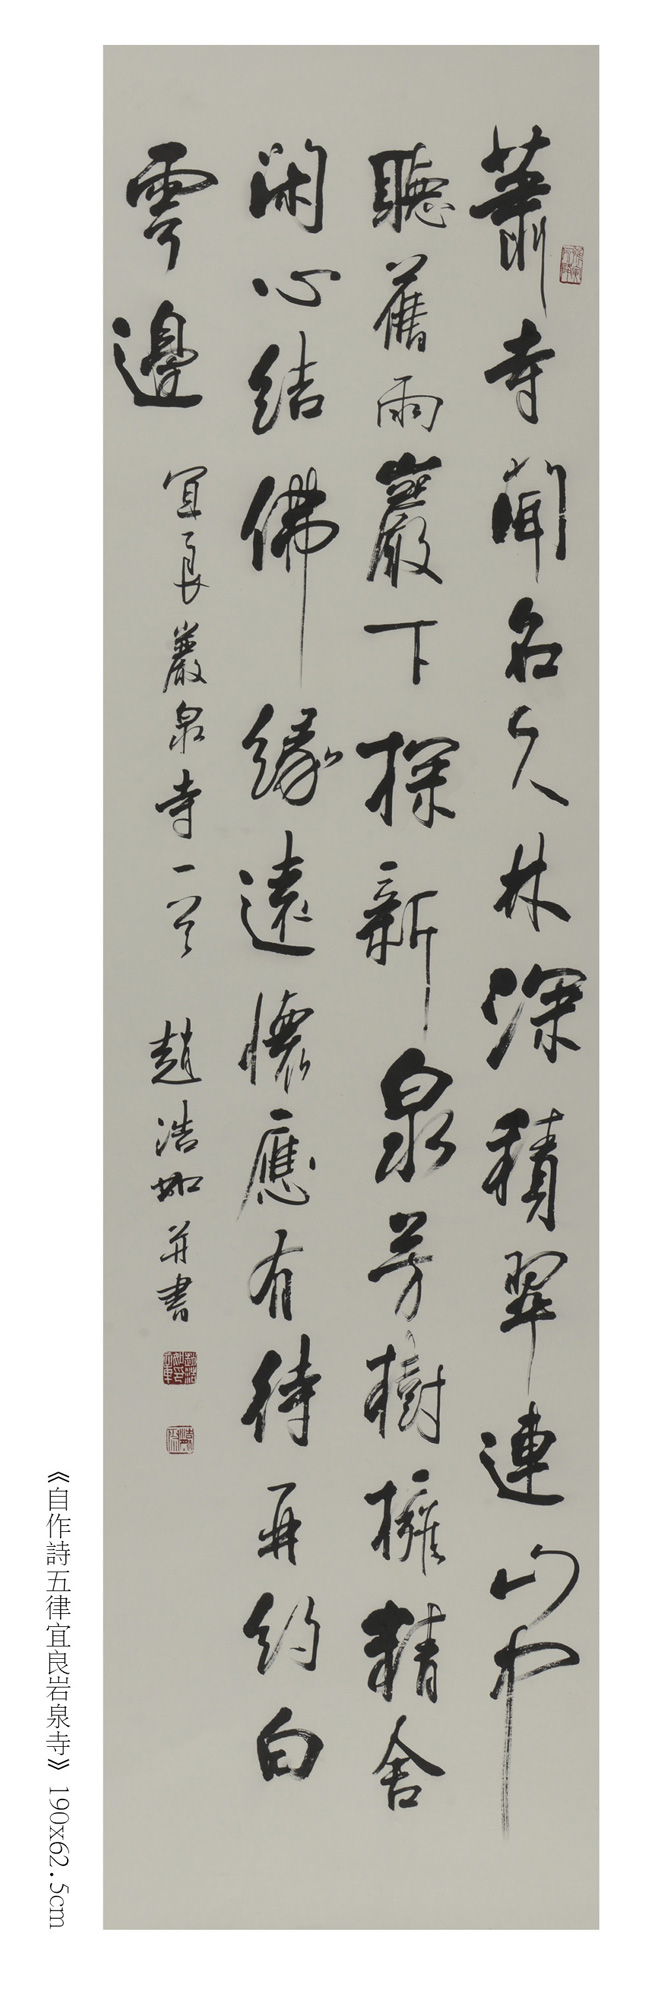 蕭寺聞名久林深積翠連山中
聽舊雨巖下探新泉芳樹擁精舍
閑心結佛緣遠懷應有待再約白
雲邊 宜良巖泉寺一首 趙浩如并書
《自作詩五律宜良岩泉寺》190x62.5cm